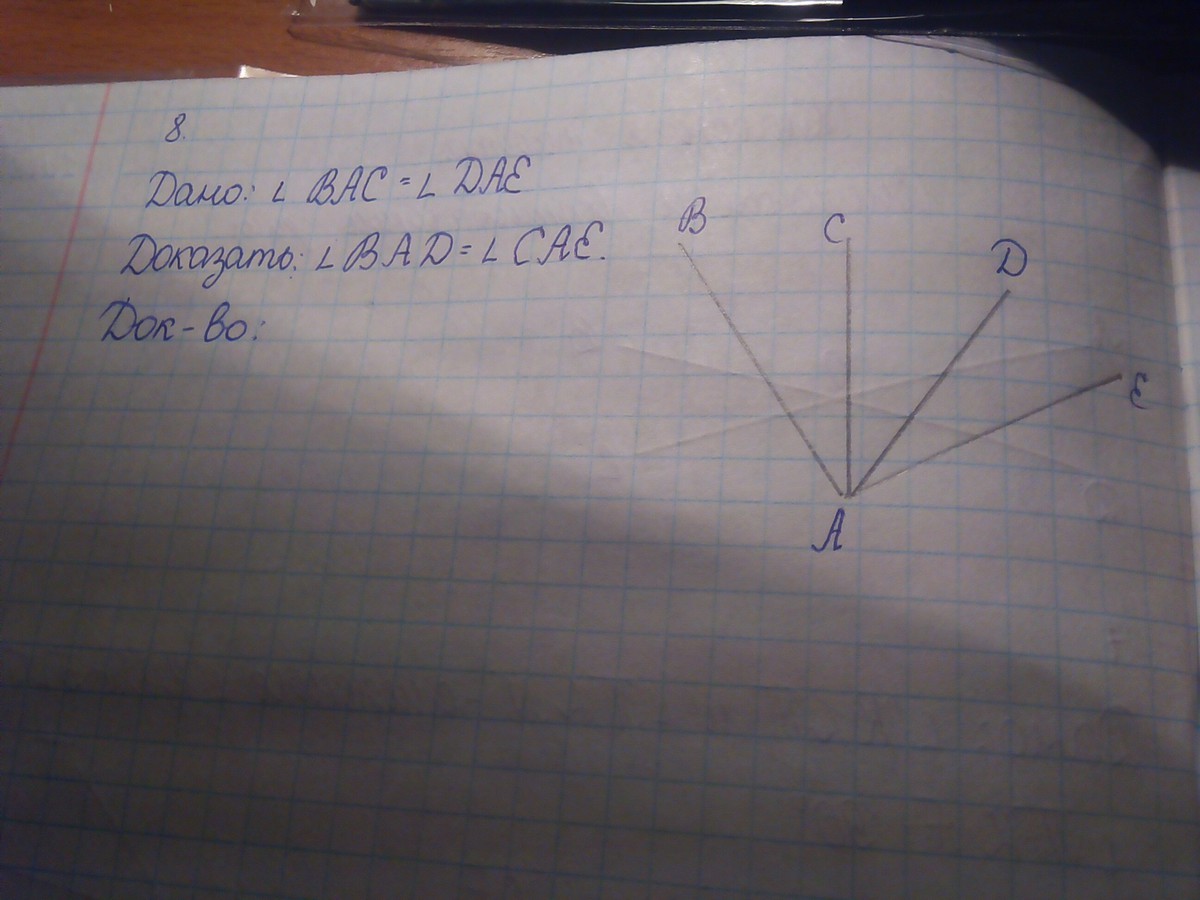 8.
Дано: ∠ BAC = ∠ DAE
Доказать: ∠ BAD = ∠ CAE.
Док-во:
B
C
D
E
A